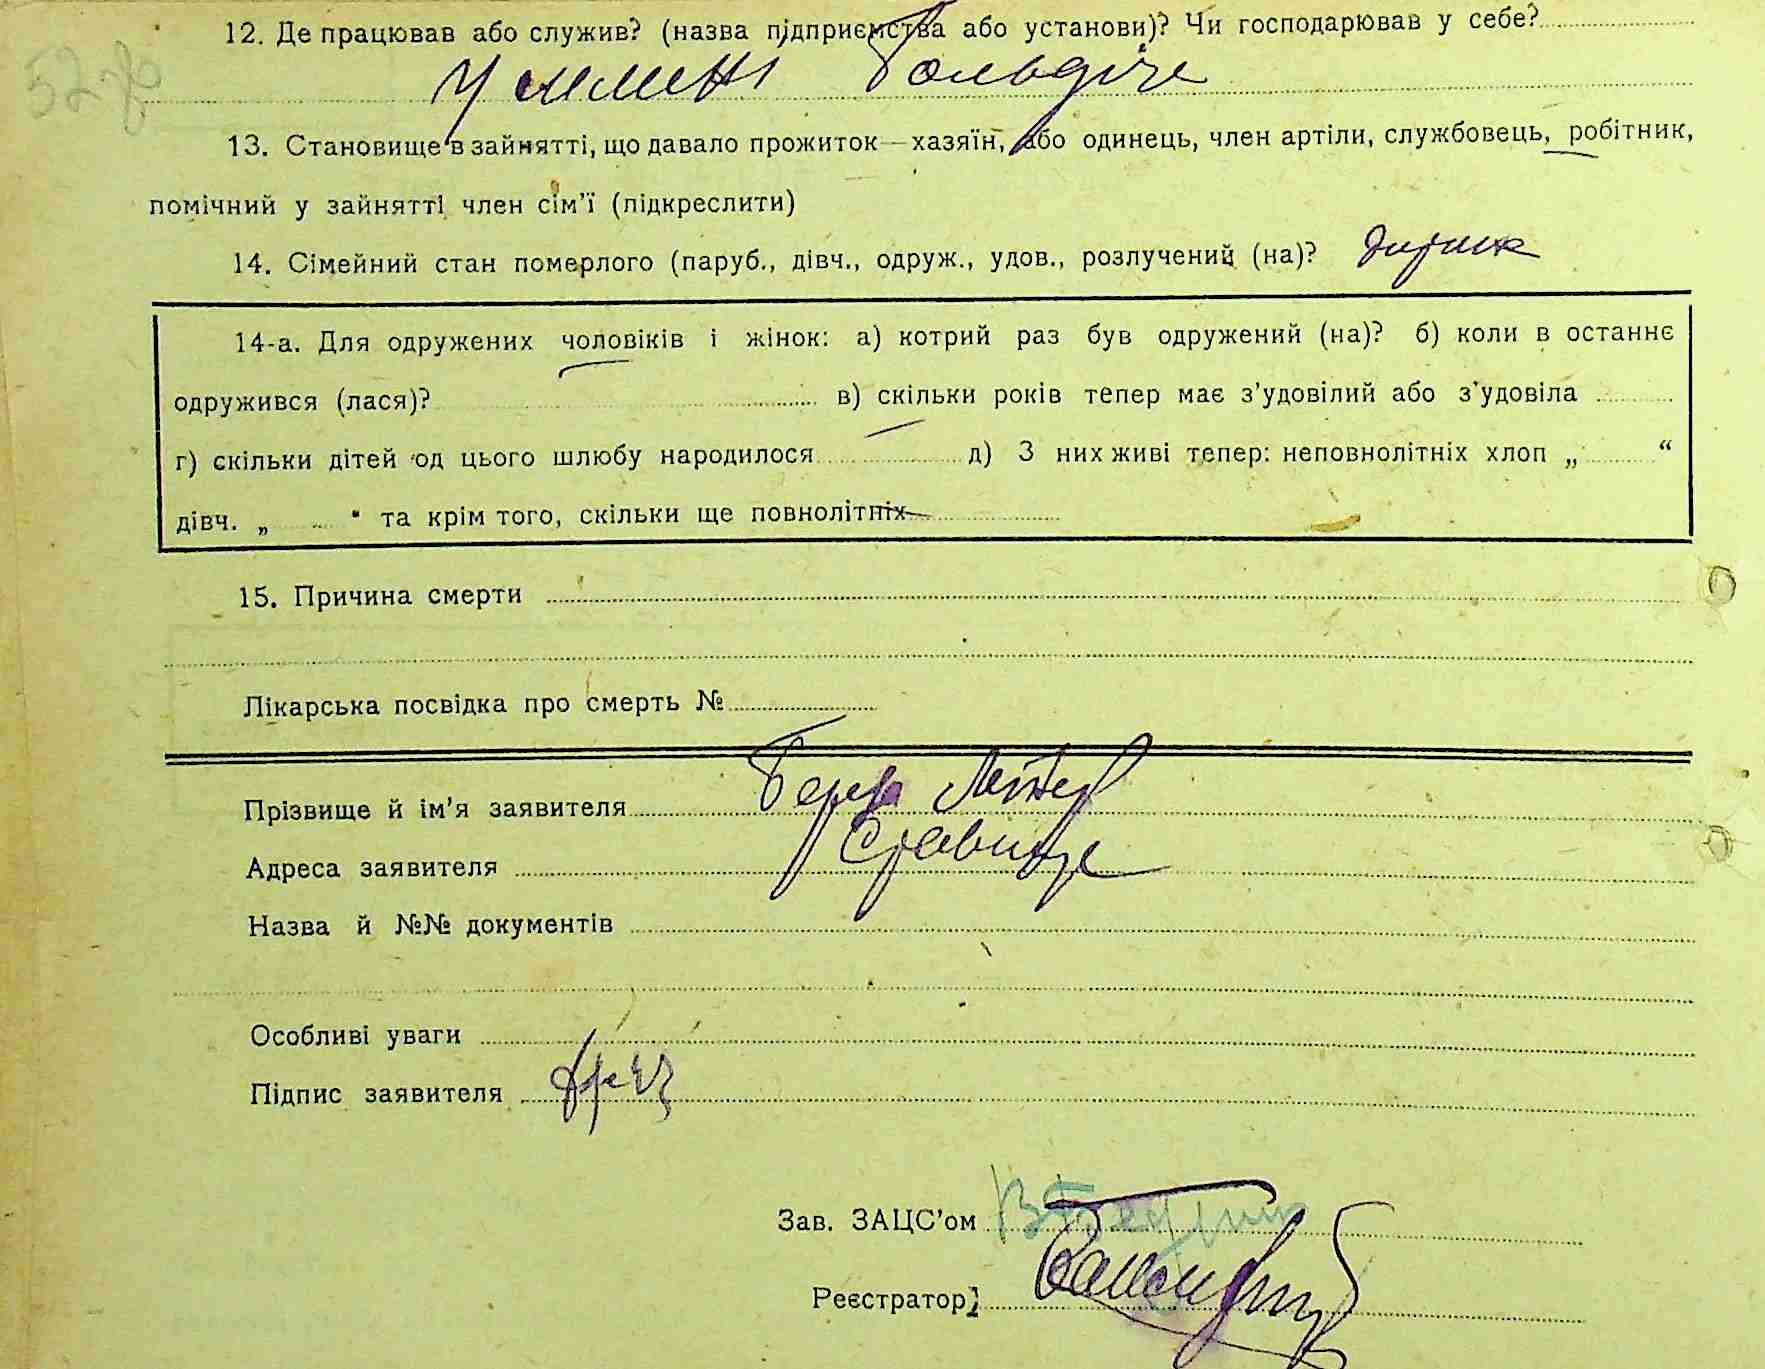 52 зв
12. Де працював або служив? (назва підприємства або установи)? Чи господарював у себе?
у
13. Становище в зайнятті, що давало прожиток—хазяїн, або одинець, член артіли, службовець, робітник,
помічний у зайнятті член сім'ї (підкреслити)
14. Сімейний стан померлого (паруб., дівч., одруж., удов., розлучений (на)?
14-а. Для одружених чоловіків і жінок: а) котрий раз був одружений (на)? б) коли в останнє
одружився (лася)? в) скільки років тепер має з'удовілий або з'удовіла
г) скільки дітей од цього шлюбу народилося д) З них живі тепер: неповнолітніх хлоп „ “
дівч. „ “ та крім того, скільки ще повнолітніх
15. Причина смерти
Лікарська посвідка про смерть №
Прізвище й ім'я заявителя
Адреса заявителя Ставище
Назва й №№ документів
Особливі уваги
Підпис заявителя
Зав. ЗАЦС'ом
Реєстратор